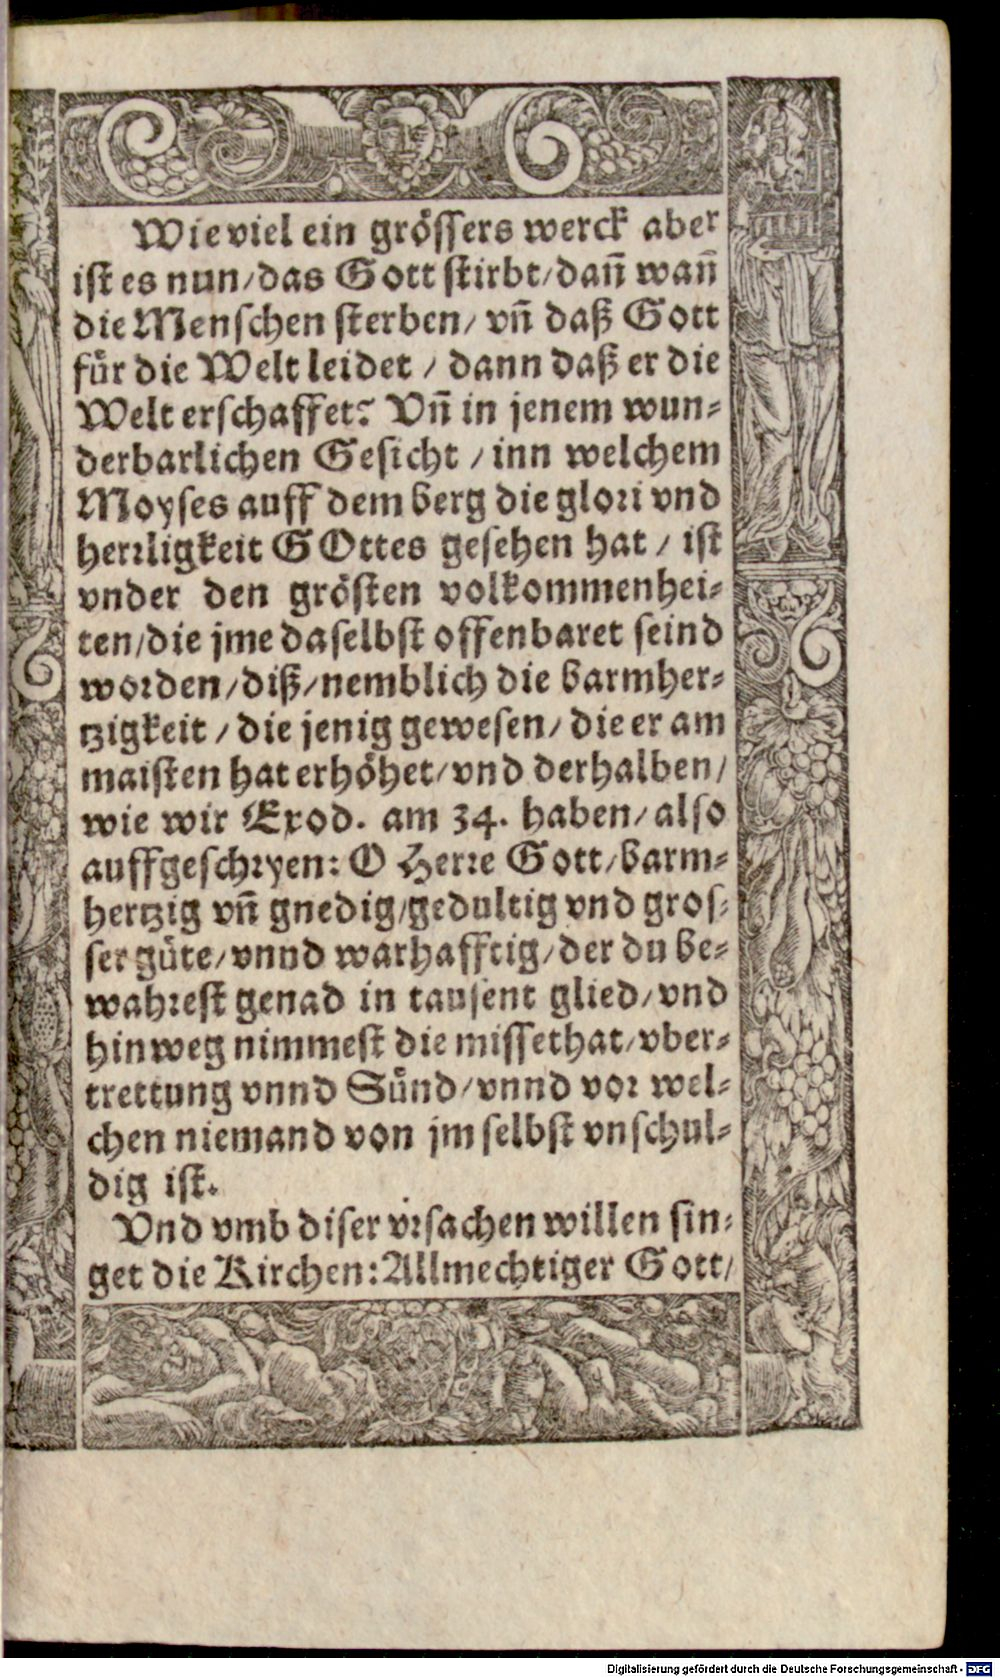 Wie viel ein grössers werck aber
ist es nun/das Gott stirbt/dañ wañ
die Menschen sterben/ vñ daß Gott
für die Welt leidet / dann daß er die
Welt erschaffet? Vñ in jenem wun-
derbarlichen Gesicht / inn welchem
Moyses auff dem berg die glori vnd
herrligkeit GOttes gesehen hat / ist
vnder den grösten volkommenhei-
ten/die jme daselbst offenbaret seind
worden/diß/nemblich die barmher-
tzigkeit / die jenig gewesen/ die er am
maisten hat erhöhet/vnd derhalben/
wie wir Exod. am 34. haben/also
auffgeschryen: O Herre Gott/barm-
hertzig vñ gnedig/gedultig vnd gros-
ser güte/vnnd warhafftig/der du be-
wahrest genad in tausent glied/vnd
hinweg nimmest die missethat/vber-
trettung vnnd Sünd/vnnd vor wel-
chen niemand von jm selbst vnschul-
dig ist.
Vnd vmb diser vrsachen willen sin-
get die Kirchen: Allmechtiger Gott/
Digitalisierung gefördert durch die Deutsche Forschungsgemeinschaft - DFG